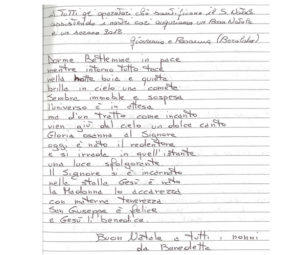 A Tutti gli operatori che santificano il S. Natale
assistendo i nostri cari auguriamo un Buon Natale
e un sereno 2018
Giovanna e Rosanna
Dorme Betlemme in pace
mentre intorno tutto tace
nella notte buia e quieta
brilla in cielo una cometa
Sembra immobile e sospesa
l'universo è in attesa
ma d'un tratto come incanto
vien giù dal cielo un dolce canto
Gloria osanna al Signore
oggi è nato il redentore
e si irrada in quell'istante
una luce sfolgorante
Il Signore si è incarnato
nella stalla Gesù è nato
la Madonna lo accarezza
con materna tenerezza
San Giuseppe è felice
e Gesù li benedice
Buon Natale a tutti i nonni
da Benedetta